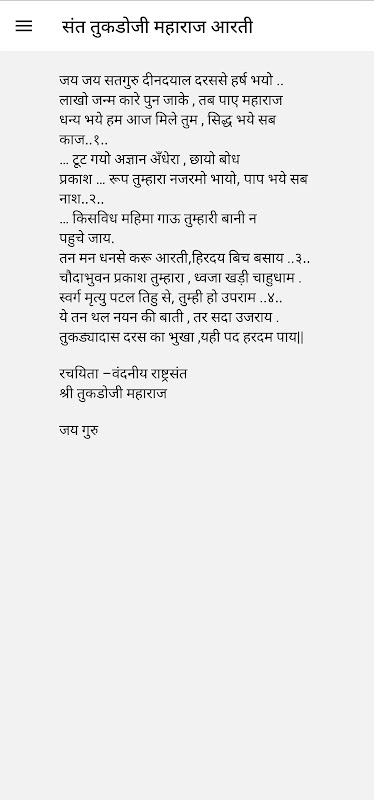 संत तुकडोजी महाराज आरती
जय जय सतगुरु दीनदयाल दरससे हर्ष भयो ..
लाखो जन्म कारे पुन जाके , तब पाए महाराज
धन्य भये हम आज मिले तुम , सिद्ध भये सब
काज..१..
... टूट गयो अज्ञान अँधेरा , छायो बोध
प्रकाश ... रूप तुम्हारा नजरमो भायो, पाप भये सब
नाश..२..
... किसविध महिमा गाऊ तुम्हारी बानी न
पहुचे जाय.
तन मन धनसे करू आरती,हिरदय बिच बसाय ..३..
चौदाभुवन प्रकाश तुम्हारा , ध्वजा खड़ी चाहुधाम .
स्वर्ग मृत्यु पटल तिहु से, तुम्ही हो उपराम ..४..
ये तन थल नयन की बाती , तर सदा उजराय .
तुकड्यादास दरस का भुखा ,यही पद हरदम पाय||
रचयिता –वंदनीय राष्ट्रसंत
श्री तुकडोजी महाराज
जय गुरु